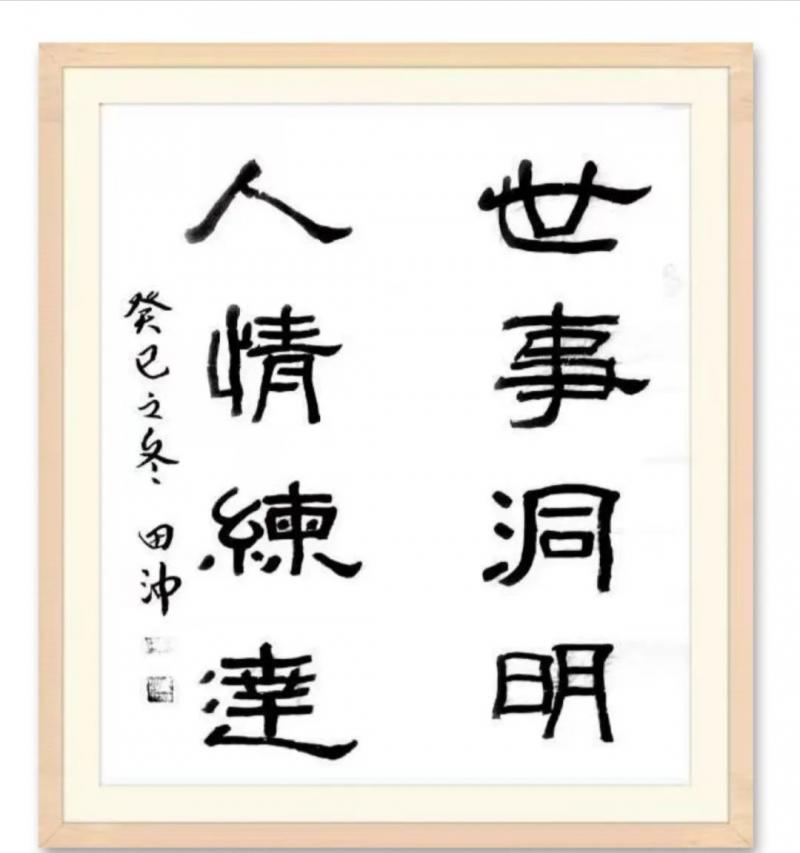 世事洞明
人情練達
癸巳之冬 田沖